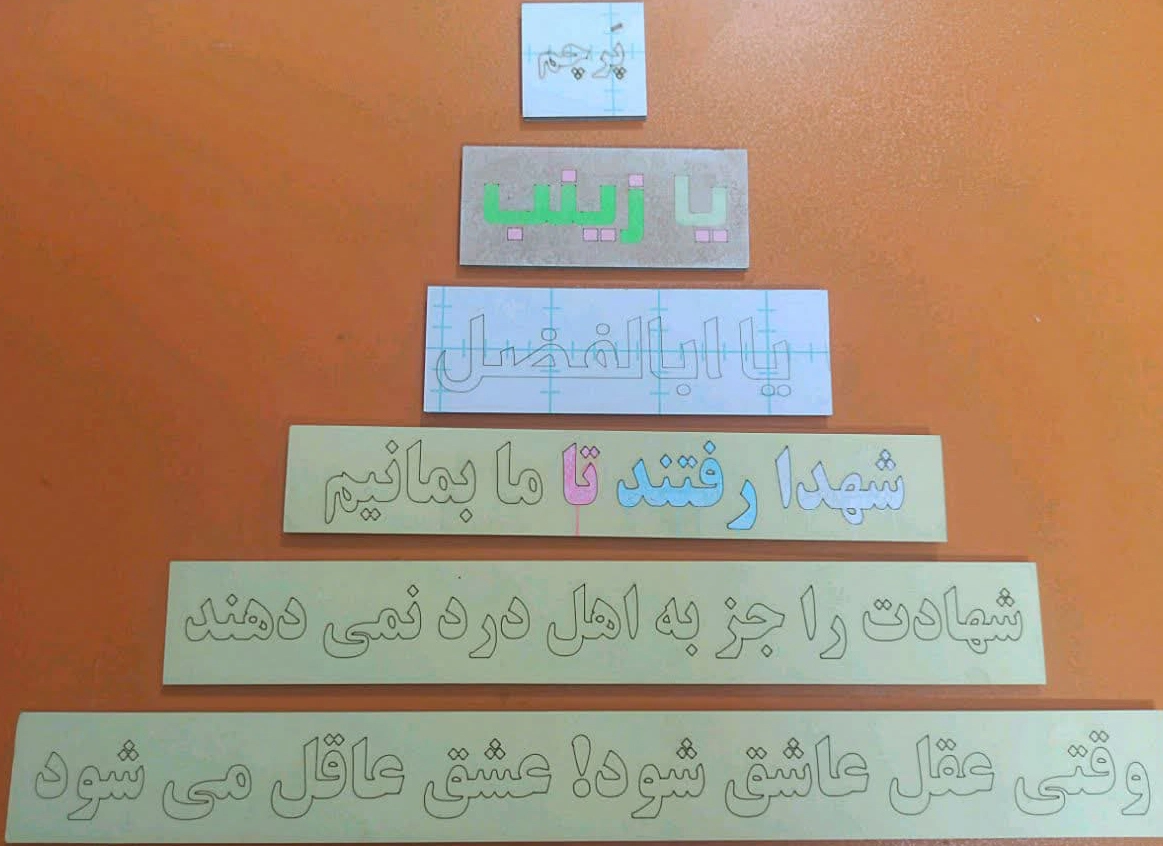 پَرچم
یا زینب
یا ابالفضل
شهدا رفتند تا ما بمانیم
شهادت را جز به اهل درد نمی دهند
وقتی عقل عاشق شود! عشق عاقل می شود